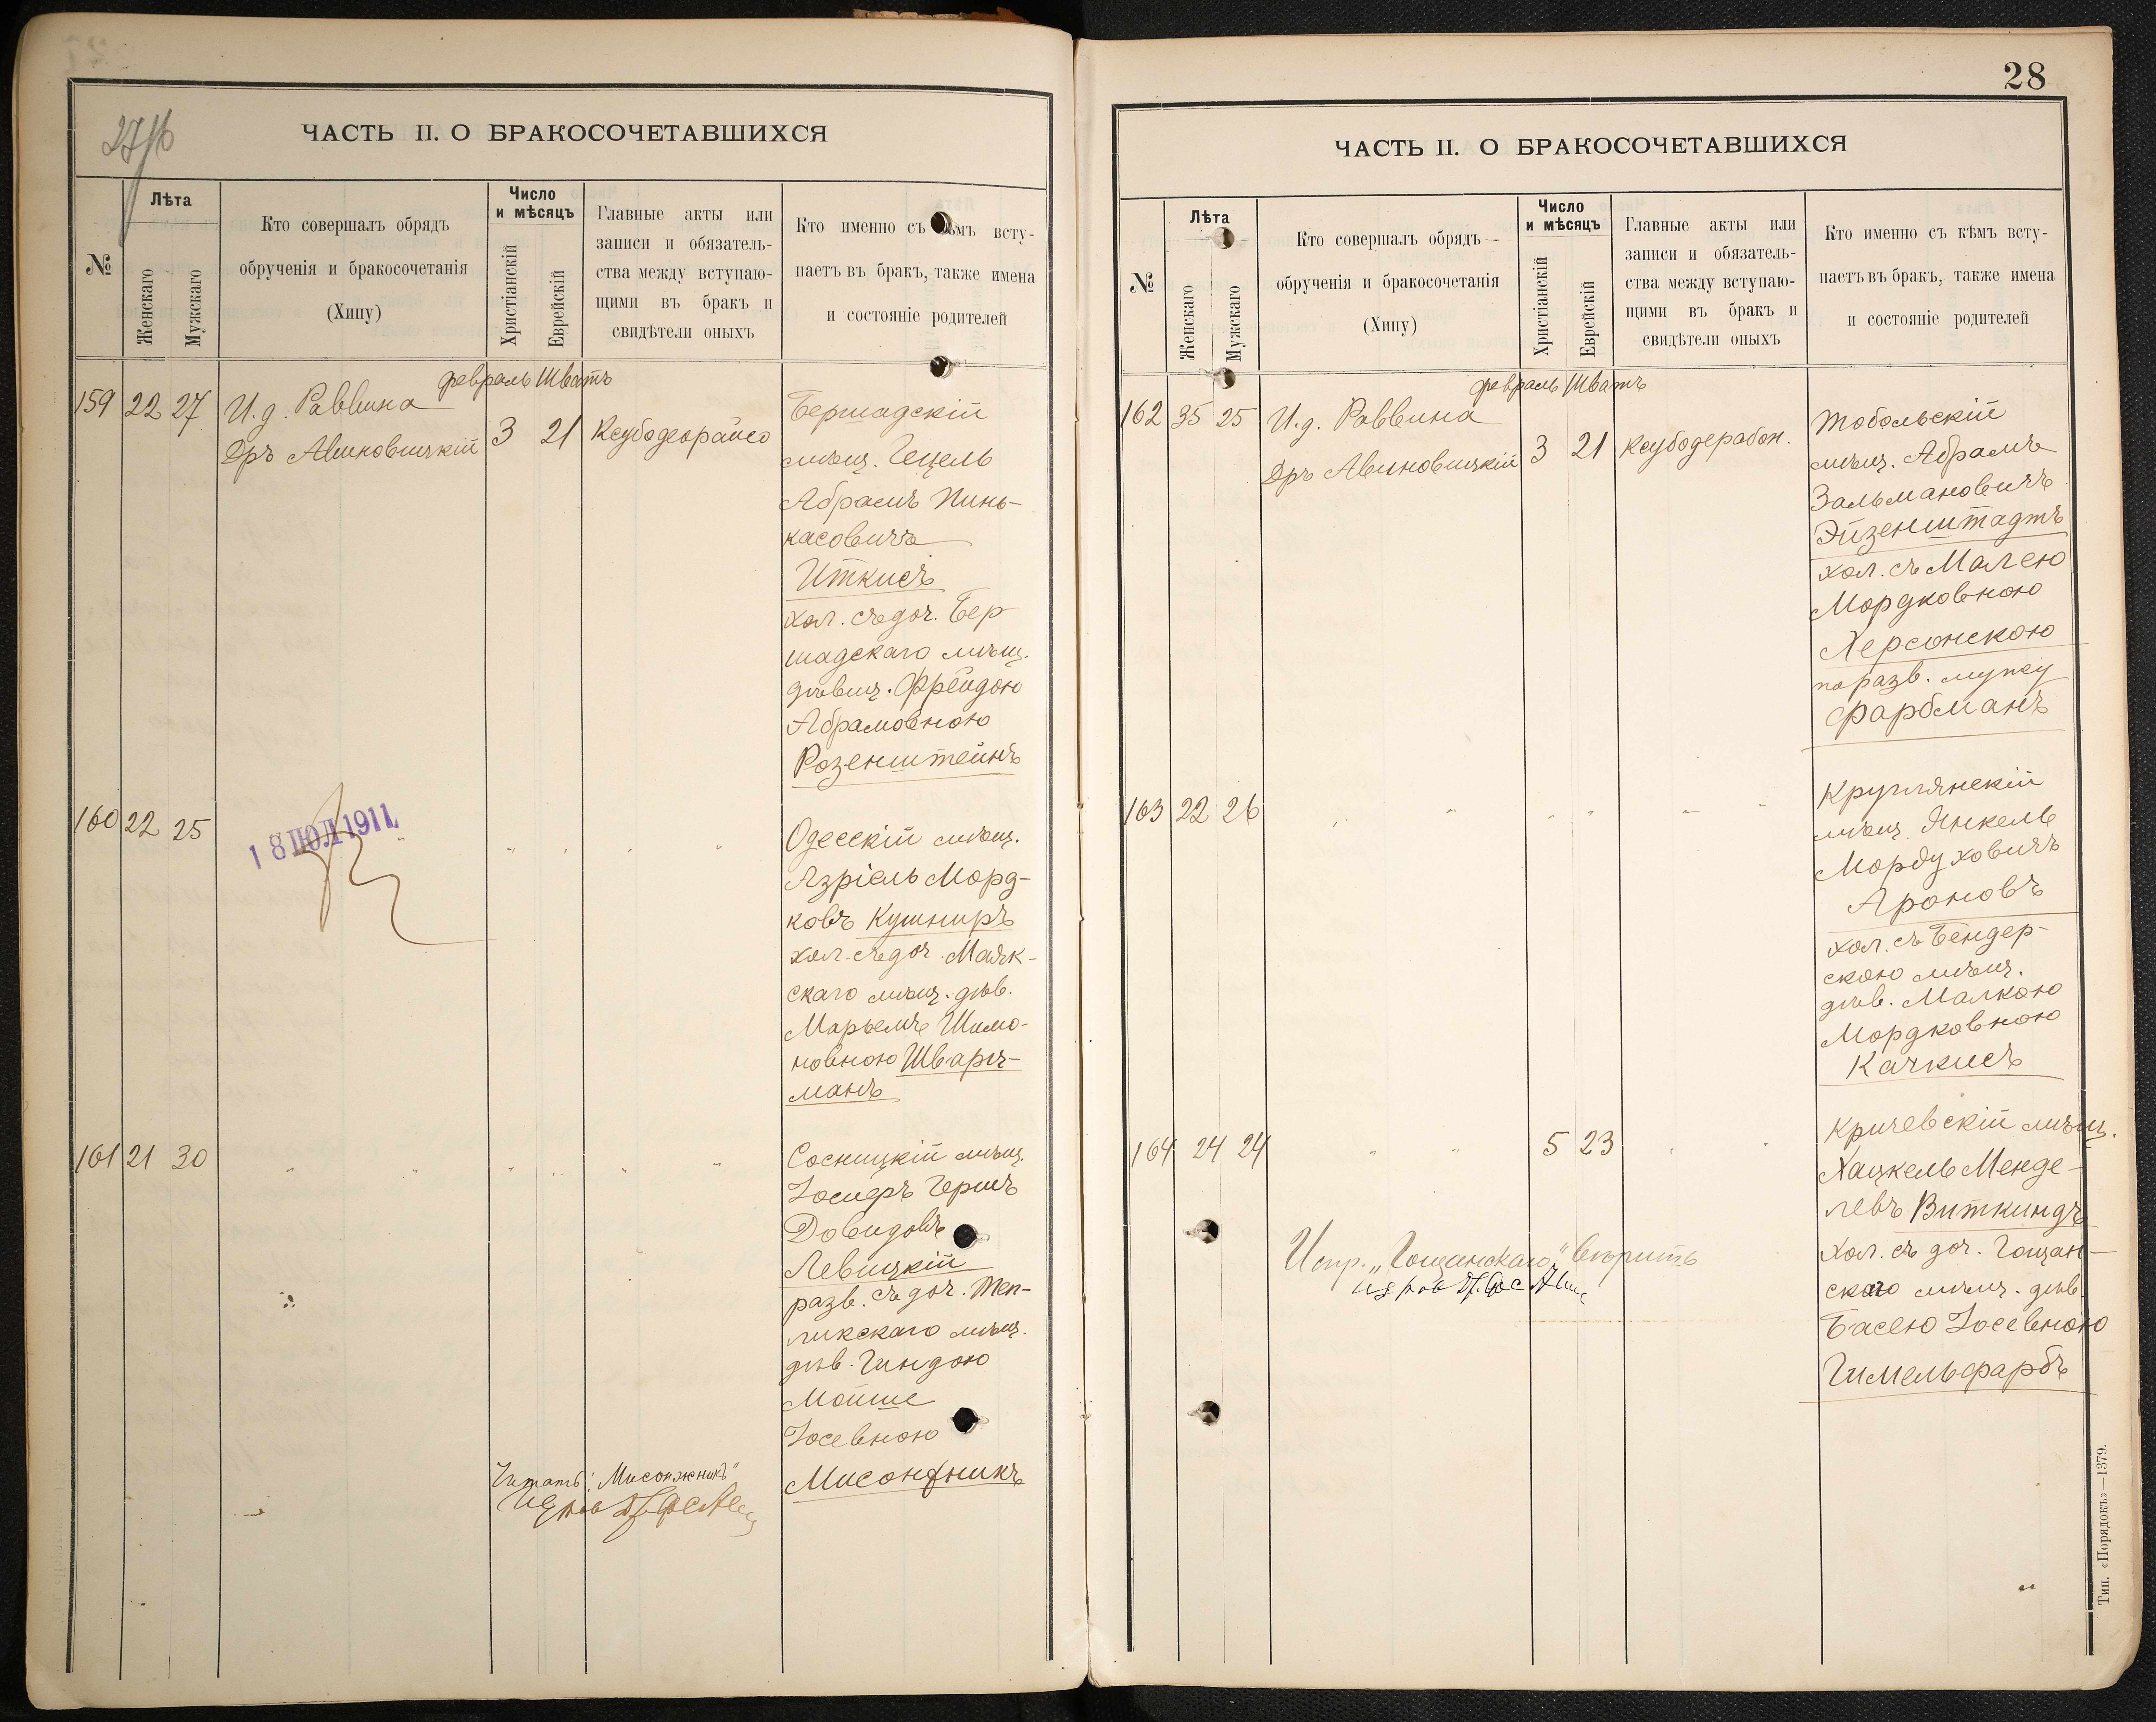 27/16
ЧАСТЬ II. О БРАКОСОЧЕТАВШИХСЯ
№
Лѣта
Женскаго
Мужскаго
Кто совершалъ обрядъ
обрученія и бракосочетанія
(Хипу)
Число
и мѣсяцъ
Христіанскій
Еврейскій
Главные акты или
записи и обязатель-
ства между вступаю-
щими въ бракъ и
свидѣтели оныхъ
Кто именно съ кѣмъ всту-
паетъ въ бракъ, также имена
и состояніе родителей
февраль Шватъ
159 22 27 И.д. Раввина
Дръ Авиновицкій 3 21
Бершадскій
мѣщ. Гецель
Абрамъ Пинь-
касовичъ
Иткисъ
хол. съ доч. Бер
шадскаго мѣщ.
дѣвиц. Фрейдою
Абрамовною
Розенштейнъ
160 22 25
18 ІЮЛ 1911
Одесскій мѣщ.
Азріель Морд-
ковъ Кушниръ
хол. съ доч. Маяк-
скаго мѣщ. дѣв.
Марьемъ Шимо-
новною Шварц-
манъ
161 21 30
Сосницкій мѣщ.
Іосифъ Гершъ
Довидовъ
Левицкій
разв. съ доч. Теп-
ликскаго мѣщ.
дѣв. Гиндою
Мойше
Іосевною
Мисонжникъ
Читать: "Мисонжникъ"
28
ЧАСТЬ II. О БРАКОСОЧЕТАВШИХСЯ
№
Лѣта
Женскаго
Мужскаго
Кто совершалъ обрядъ
обрученія и бракосочетанія
(Хипу)
Число
и мѣсяцъ
Христіанскій
Еврейскій
Главные акты или
записи и обязатель-
ства между вступаю-
щими въ бракъ и
свидѣтели оныхъ
Кто именно съ кѣмъ всту-
паетъ въ бракъ, также имена
и состояніе родителей
февраль Шватъ
162 35 25 И.д. Раввина
Дръ Авиновицкій 3 21 Ксубодерабон.
Тобольскій
мѣщ. Абрамъ
Зальмановичъ
Эйзенштадтъ
хол. съ Малею
Мордковною
Херсонскою
по разв. мужу
Фарбманъ
163 22 26
Круглянскій
мѣщ. Янкель
Мордуховичъ
Ароновъ
хол. съ Бендер-
скою мѣщ.
дѣв. Малкою
Мордковною
Качкисъ
164 24 24 5 23
Кричевскій мѣщ.
Хацкель Менде-
левъ Виткиндъ
хол. съ доч. Гощан-
скаго мѣщ. дѣв.
Басею Іосевною
Гимельфарбъ
Испр. „Гощанскаго" вѣрить
Тип. «Порядокъ»—1379.